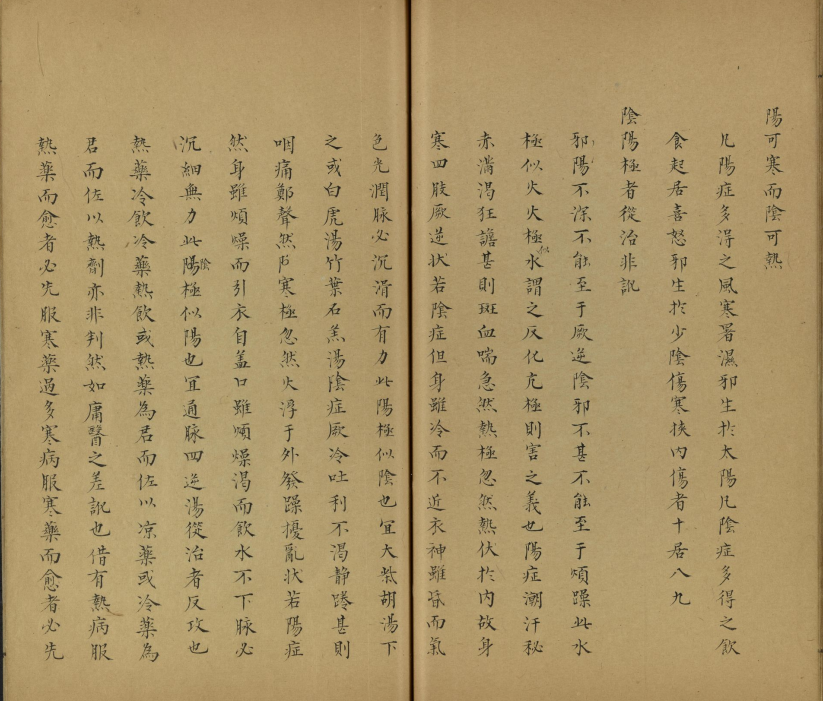 陽可寒而陰可熱
凡陽症多得之風寒暑濕邪生於太陽凡陰症多得之飲
食起居喜怒邪生於少陰傷寒挾內傷者十居八九
陰陽極者從治非訛
邪陽不深不能至于厥逆陰邪不甚不能至于煩躁此水
極似火火極似水謂之反化亢極則害之義也陽症潮汗秘
赤滿渴狂譫甚則斑血喘急然熱極忽然熱伏於內故身
寒四肢厥逆状若陰症但身雖冷而不近衣神雖昏而氣
色光潤脉必沉滑而有力此陽極似陰也宜大柴胡湯下
之或白虎湯竹葉石羔湯陰症厥冷吐利不渴静踡甚則
咽痛鄭聲然陰寒極忽然火浮于外發躁擾亂状若陽症
然身雖煩燥而引衣自盖口雖煩燥渴而飲水不下脉必
沉細無力此陰極似陽也宜通脉四逆湯從治者反攻也
熱藥冷飲冷藥熱飲或熱藥為君而佐以凉藥或冷藥為
君而佐以熱劑亦非判然如庸醫之差訛也借有熱病服
熱藥而愈者必先服寒藥過多寒病服寒藥而愈者必先